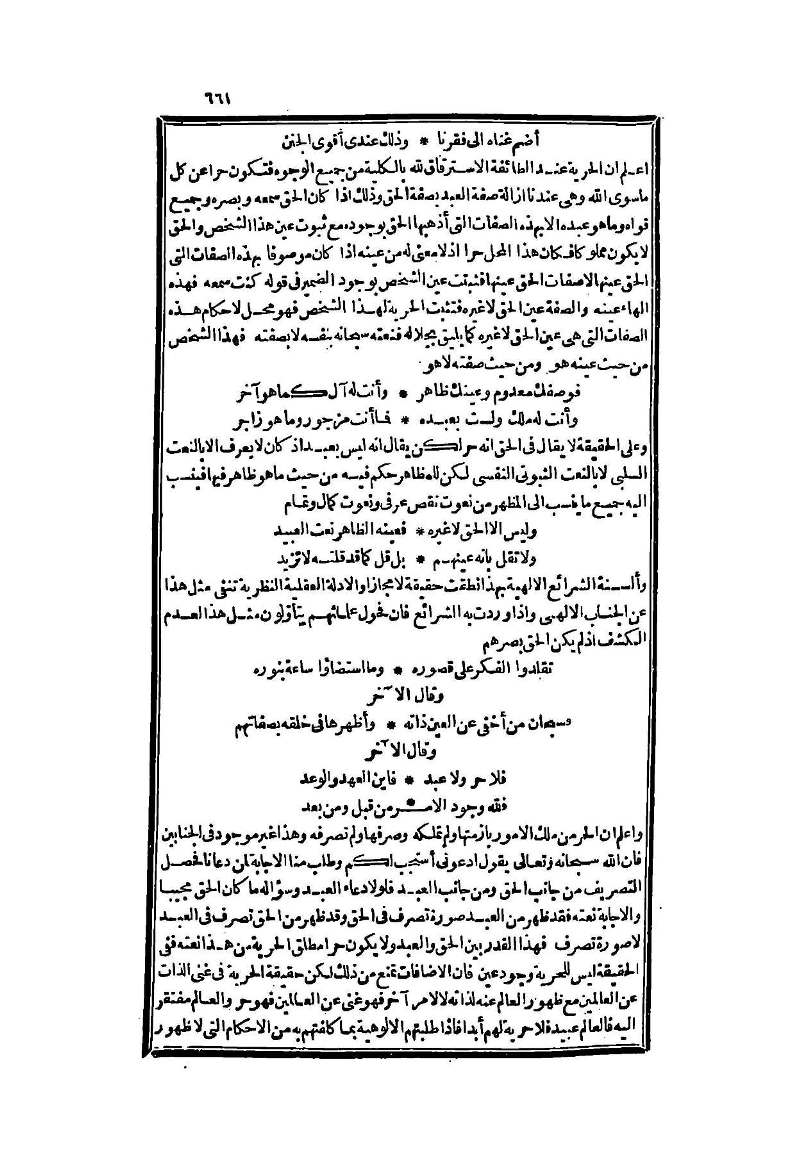 ٦٦١
أضم غناه الى فقرنا * وذلك عندى أقوى الجنن
اعلم ان الحرية عند الطائفة الاسترقاق لله بالكلية من جميع الوجوه فتكون حرا عن كل
ماسوى الله وهى عندنا ازالة صفة العبد بصفة الحق وذلك اذا كان الحق سمعه وبصره وجميع
قواه وما هو عبده الا بهذه الصفات التى أذهبها الحق بوجوده مع ثبوت عين هذا الشخص والحق
لا يكون مملوكا فكان هذا المحل حرا اذلا معنى له من عينه اذا كان موصوفا بهذه الصفات التى
الحق عينها لاصفات الحق عينها فثبتت عين الشخص بوجود الضمير فى قوله كنت سمعه فهذه
الهاء عينه والصفة عين الحق لاغيره فتثبت الحرية لهذا الشخص فهو محل لاحكام هذه
الصفات التى هى عين الحق لاغيره كما يليق بجلاله فنعته سبحانه بنفسه لا بصفته فهذا الشخص
من حيث عينه هو ومن حيث صفته لاهو
فوصفك معدوم وعينك ظاهر * وأنت له آل كما هو آخر
وأنت له ملك ولست بعبده * فاأنت مزجور وما هو زاجر
وعلى الحقيقة لا يقال فى الحق انه حر لكن يقال انه ليس بعبد اذ كان لا يعرف الا بالنعت
السلبى لا بالنعت الثبوتى النفسى لكن للمظاهر حكم فيه من حيث ماهو ظاهر فيها فينسب
اليه جميع ما ينسب الى المظهر من نعوت نقص عرفى ونعوت كمال وتمام
وليس الا الحق لاغيره * فعينه الظاهر نعت العبيد
ولا تقل بانه عينهم * بل قل كما قد قلته لا تزيد
وألسنة الشرائع الالهية بهذا نطقت حقيقة لامجازا والادلة العقلية النظرية تنفى مثل هذا
عن الجناب الالهى واذا وردت به الشرائع فان فحول علمائهم يتأولون مثل هذا لعدم
الكشف اذلم يكن الحق بصرهم
تقلدوا الفكر على قصوره * وما استضاؤا ساعة بنوره
وقال الآخر
وسبحان من أخفى عن العين ذاته * وأظهرها فى خلقه بصفاتهم
وقال الآخر
فلا حر ولا عبد * فاين العهد والوعد
فلله وجود الامر من قبل ومن بعد
واعلم ان الحر من ملك الامور بازمتها ولم تملكه وصرفها ولم تصرفه وهذا غير موجود فى الجنابين
فان الله سبحانه وتعالى يقول ادعونى أستجب لكم وطلب منا الاجابة لمن دعانا فحصل
التصريف من جانب الحق ومن جانب العبد فلولا دعاء العبد وسؤاله ما كان الحق مجيبا
والاجابة نعته فقد ظهر من العبد صورة تصرف فى الحق وقد ظهر من الحق تصرف فى العبد
لاصورة تصرف فهذا القدر بين الحق والعبد ولا يكون حرا مطلق الحرية من هذا نعته ففى
الحقيقة ليس للحرية وجود عين فان الاضافات تمنع من ذلك لكن حقيقة الحرية فى غنى الذات
عن العالمين مع ظهور العالم عنه لذاته لا لامر آخر فهو غنى عن العالمين فهو حر والعالم مفتقر
اليه فالعالم عبيد فلا حرية لهم أبدا فاذا طلبتهم الالوهية بما كلفتهم به من الاحكام التى لا ظهور